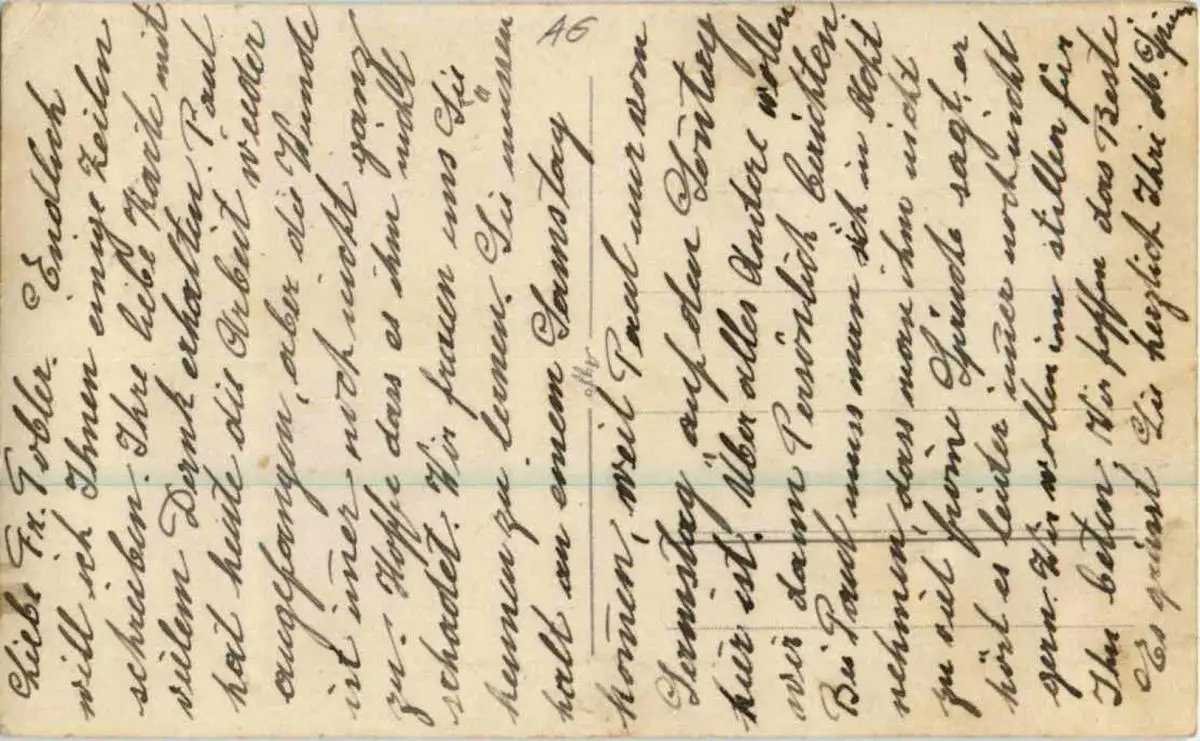 Liebe Fr. Tobler. Endlich
will ich Ihnen einige Zeilen
schreiben. Ihre liebe Karte mit
vielem Dank erhalten. Paul
hat heute die Arbeit wieder
angefangen, aber die Wunde
ist im̅er noch nicht ganz
zu. Hoffe das es ihm nicht
schadet. Wir freuen uns Sie
kennen zu lernen. Sie müssen
halt an einem Samstag
kom̅en, weil Paul nur vom
Samstag auf den Son̅tag
hier ist. Über alles Andere wollen
wir dann Persönlich berichten
Bei Paul muss man sich in Acht
nehmen, dass man ihm nicht
zu viel from̅e Sprüche sagt, er
hört es leider im̅er noch nicht
gern. Wir wollen im stillen für
Ihn beten. Wir hoffen das Beste
Es grüsst Sie herzlich Ihre M.
A6